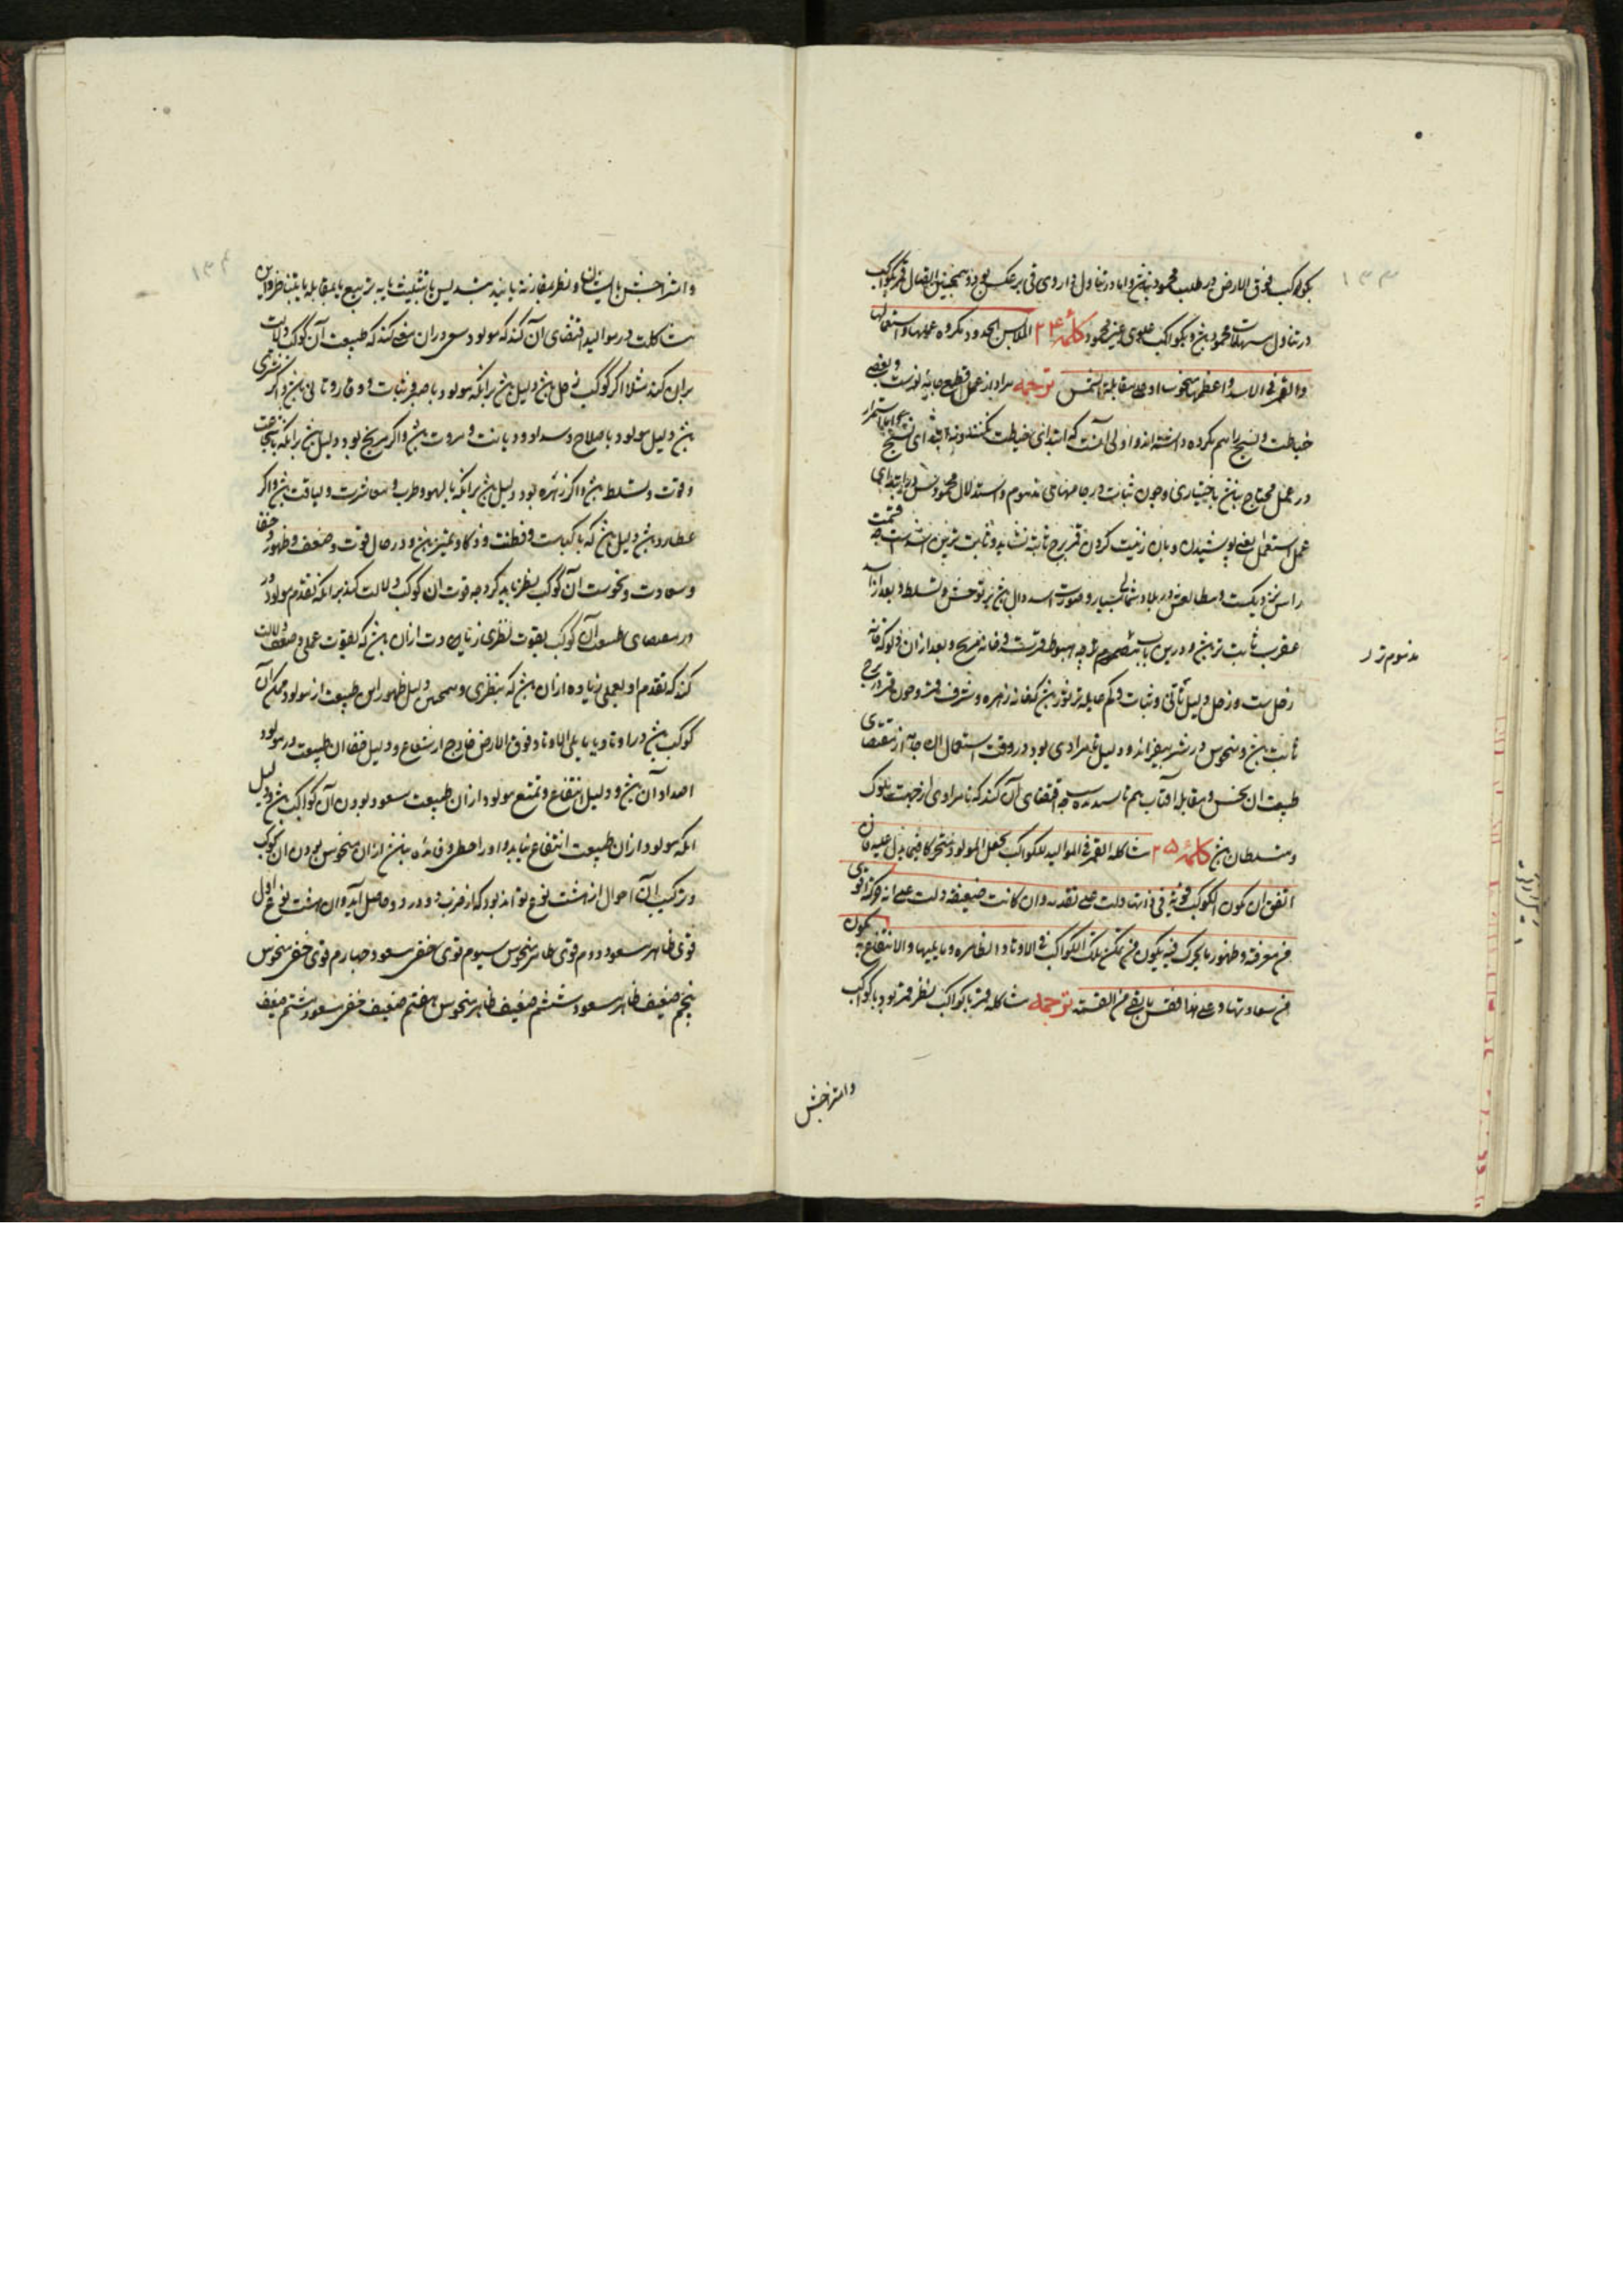 ۱۳۳
بکواکب فوق الارض در طلب محمود نباشد و اما در تناول داروی قی بر عکس بود و همچنین اتصال قمر بکواکب
در تناول مسهلات محمود باشد و بکواکب علوی غیر محمود کلمهٔ ۲۴ الملابس الجدد مکروه عملها و استعمالها
والقمر فی الاسد و اعظمها منحوسا او علی مقابلة الشمس ترجمه مراد از عمل قطع جامهٔ نوست و بعضی
خیاطت و نسج را هم مکروه داشته‌اند و اولی آنست که ابتدای خیاطت نکنند و نه ابتدای نسج
در عمل محتاج نباشد باختیاری و چون ثبات در جامها مذموم و استدلال محمود پس در ابتدای
عمل استعمال یعنی پوشیدن و بان زینت کردن قمر ببرج ثابته نشاید و ثابت ترین اسدست
راس نزدیکست و مطالعش در بلاد شمالی بسیار و صورت اسد دال باشد بر توحش و تسلط و بعد ازان
عقرب ثابت تر باشد و درین باب مذموم چه هبوط قمرست و خانه مریخ و بعد ازان دلو که خانه
زحل‌ست و زحل دلیل تأنی و ثبات و کم حایله تر ثور باشد که خانه زهره و شرف قمر و چون قمر در برج
ثابت باشد و منحوس در شر بیفزاید و دلیل نامرادی بود در وقت استعمال ان جامه از مقتضای
طبیعت ان نحس و مقابله افتاب هم ناپسندیده است چه اقتضای آن کند که نامرادی از جهت ملوک
و سلطان باشد کلمهٔ ۲۵ مشاکلة القمر فی الموالید للکواکب تجعل المولود متحرکا فیما یدل علیه فان
اتفق ان یکون الکواکب قویة فی ذاتها دلت علی تقدمه وان کانت ضعیفة دلت علی انه حرکته اقوی
من معرفته و ظهور ما یتحرک فیه یکون من تمکن تلک الکواکب فی الاوتاد الظاهره و ما یلیها و الانتفاع به یکون
من سعادتها و علی هذا فقس ما بقی من القسمة ترجمه مشاکله قمر با کواکب بنظر قمر بود با کواکب
و امتزاجش
۱۳۴
و امتزاجش بایشان و نظر مقارنه یا تسدیس یا تثلیث یا تربیع یا مقابله یا بتناظر و این
مشاکلت در موالید اقتضای آن کند که مولود سعی دران نمی کند که طبیعت آن کوکب دلالت
بران کند مثلا اگر کوکب زحل باشد دلیل باشد برانکه مولود با صبر و ثبات و وقار و تأنی باشد و اگر مشتری
باشد دلیل مولود با صلاح و سداد و دیانت و مروت باشد و اگر مریخ بود دلیل باشد برانکه با شجاعت
و قوت و تسلط باشد و اگر زهره بود دلیل باشد برانکه با لهو و طرب و معاشرت و لباقت باشد و اگر
عطارد باشد دلیل باشد که با کیاست و فطنت و ذکا و تمییز باشد و در حال قوت و ضعف و ظهور و خفا
و سعادت و نحوست آن کوکب نظر باید کرد چه قوت ان کوکب دلالت کند برانکه تقدم مولود در
مقتضای طبیعت آن کوکب بقوت نظری زیادت ازان باشد که بقوت عملی و ضعفش دلالت
کند که تقدم او بعملی زیاده ازان باشد که بنظری و همچنین دلیل ظهور این طبیعت از مولود تمکن آن
کوکب باشد در اوتاد یا مایلی الاوتاد فوق الارض خارج از شعاع و دلیل خفا ان طبیعت در مولود
اضداد آن باشد و دلیل انتفاع و تمتع مولود ازان طبیعت سعود بودن آن کواکب باشد و دلیل
انکه مولود ازان طبیعت انتفاع نیابد و او را حظی و فائده نباشد ازان منحوس بودن ان کوکب
و ترکیب ان احوال از هشت نوع تواند بود که از ضرب دو در دو حاصل آید و ان هشت نوع اول
قوی ظاهر سعود دوم قوی ظاهر منحوس سیوم قوی خفی سعود چهارم قوی خفی منحوس
پنجم ضعیف ظاهر سعود ششم ضعیف ظاهر منحوس هفتم ضعیف خفی سعود هشتم ضعیف